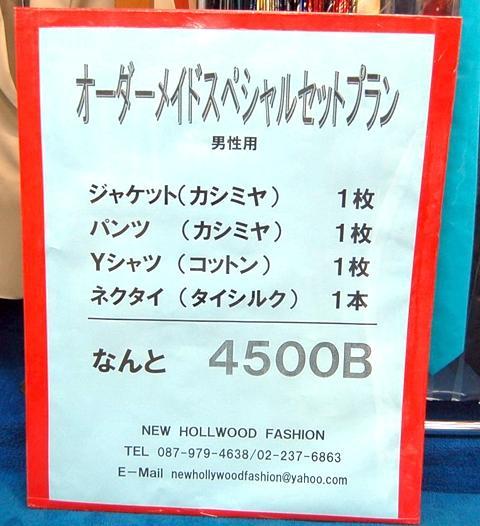 オーダーメイドスペシャルセットプラン
男性用
ジャケット(カシミヤ) 1枚
パンツ (カシミヤ) 1枚
Yシャツ (コットン) 1枚
ネクタイ (タイシルク) 1本
なんと 4500B
NEW HOLLWOOD FASHION
TEL 087-979-4638/02-237-6863
E-Mail newhollywoodfashion@yahoo.com